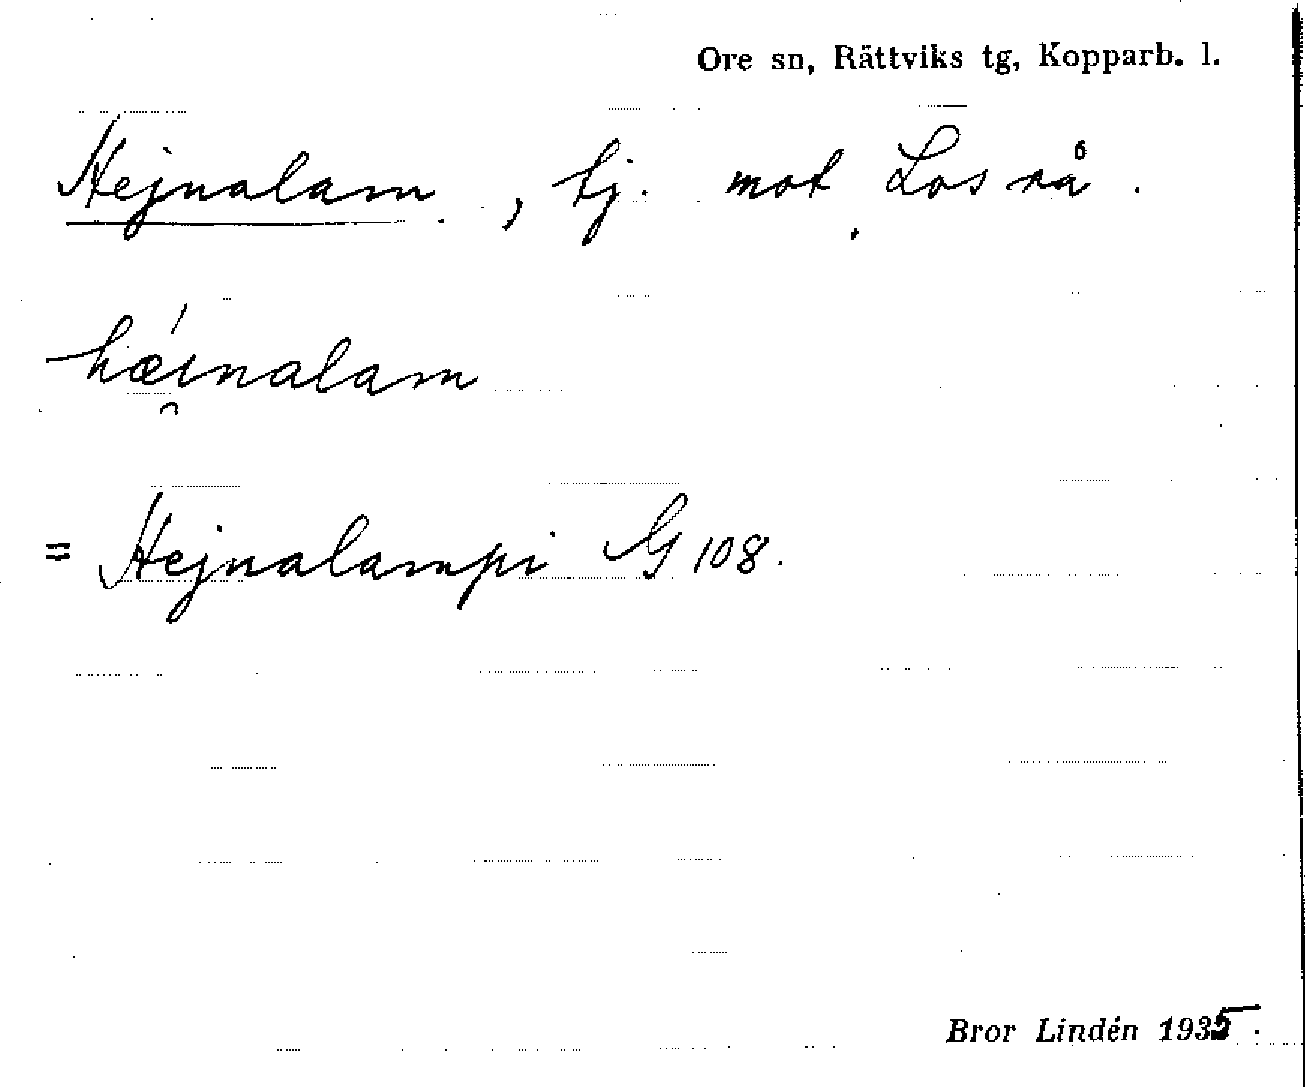 Ore sn, Rättviks tg, Kopparb. l.
Hejnalam, tj. mot Los rå.
hǽi̯nalam
= Hejnalampi G 108.
Bror Lindén 1935.